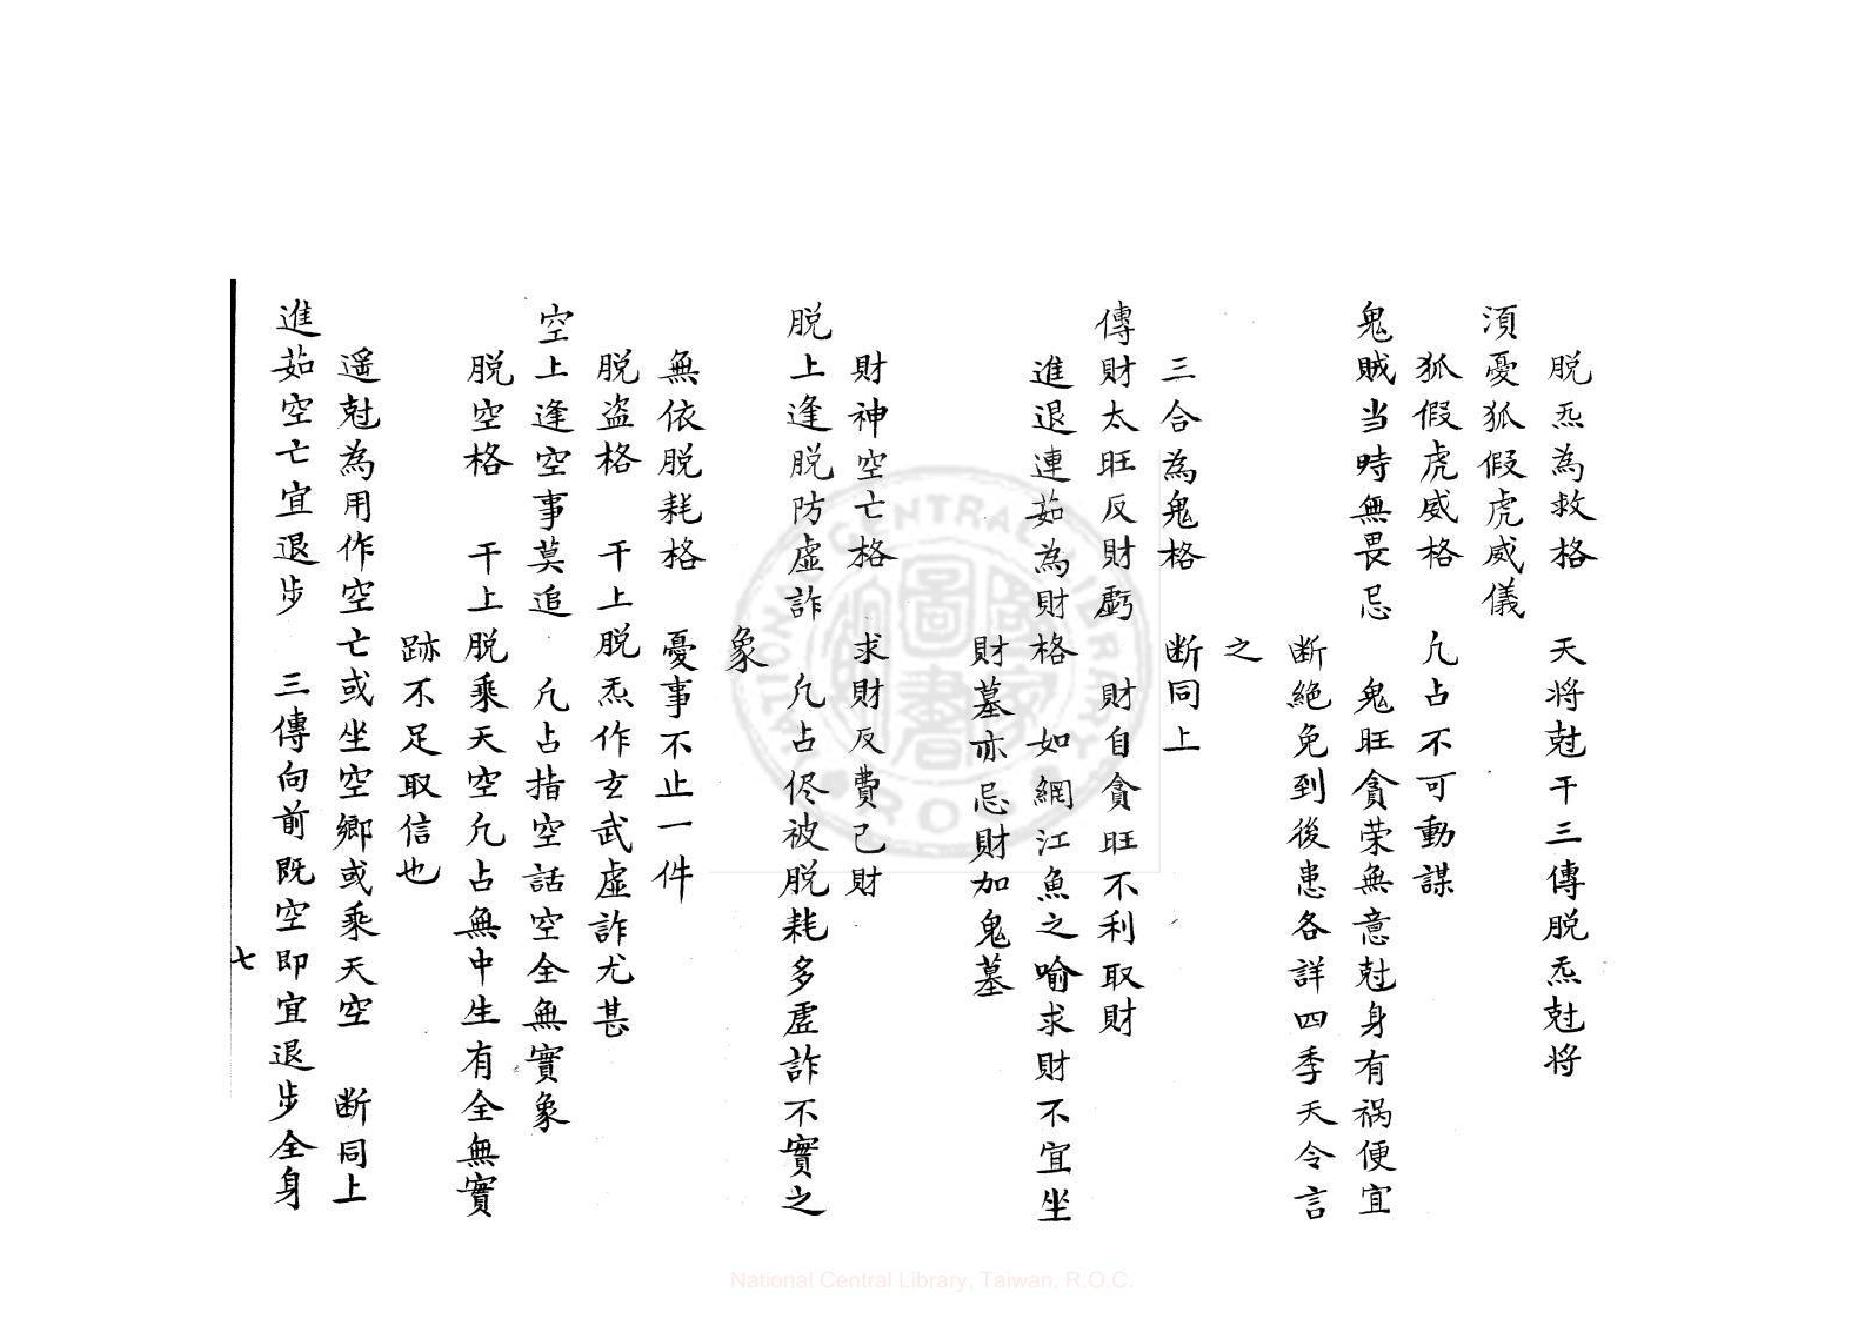 脱炁為救格　天将尅干三傳脱炁尅将
湏憂狐假虎威儀
狐假虎威格　凢占不可動謀
鬼賊当時無畏忌　鬼旺貪荣無意尅身有祸便宜
断絶免到後患各詳四季天令言
之
三合為鬼格　断同上
傳財太旺反財虧　財自貪旺不利取財
進退連茹為財格　如網江魚之喻求財不宜坐
財墓亦忌財加鬼墓
財神空亡格　求財反費己財
脱上逢脱防虚詐　凢占侭被脱耗多虚詐不實之
象
無依脱耗格　憂事不止一件
脱盗格　干上脱炁作玄武虚詐尤甚
空上逢空事莫追　凢占指空話空全無實象
脱空格　干上脱乘天空凢占無中生有全無實
跡不足取信也
遥尅為用作空亡或坐空鄉或乘天空　断同上
進茹空亡宜退步　三傳向前既空即宜退步全身
七
NATIONAL CENTRAL LIBRARY
R O C
國家圖書館
National Central Library, Taiwan, R.O.C.